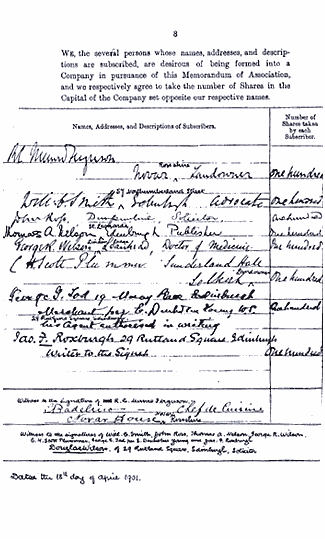 8
WE, the several persons whose names, addresses, and descrip-
tions are subscribed, are desirous of being formed into a
Company in pursuance of this Memorandum of Association,
and we respectively agree to take the number of Shares in the
Capital of the Company set opposite our respective names.
Names, Addresses, and Descriptions of Subscribers.
Number of
Shares taken
by each
Subscriber.
R C Munro Ferguson
Novar Ross-shire Landowner One hundred
Will B. Smith, 57 Northumberland Street Edinburgh Advocate One hundred
John Ross, Dunfermline, Solicitor One hundred
Thomas A. Nelson Edinburgh Publisher One hundred
George R. Wilson, Doctor of Medicine One hundred
C H Scott Plummer Sunderland Hall
Selkirk One hundred
George G. Tod 19 Edinburgh
Merchant per E. Young W.S. One hundred
his Agent authorised in writing
Jas. F. Roxburgh. 29 Rutland Square, Edinburgh
Writer to the Signet One hundred
Witness to the signature of R. C. Munro Ferguson
Chef de Cuisine
Novar House, Ross-shire
Witness to the signatures of Will. B. Smith, John Ross, Thomas A. Nelson, George R. Wilson,
C. H. Scott Plummer, George G. Tod per E. Young and Jas. F. Roxburgh
Douglas Wilson, of 29 Rutland Square, Edinburgh, Solicitor
Dated the 18th day of April 1901.